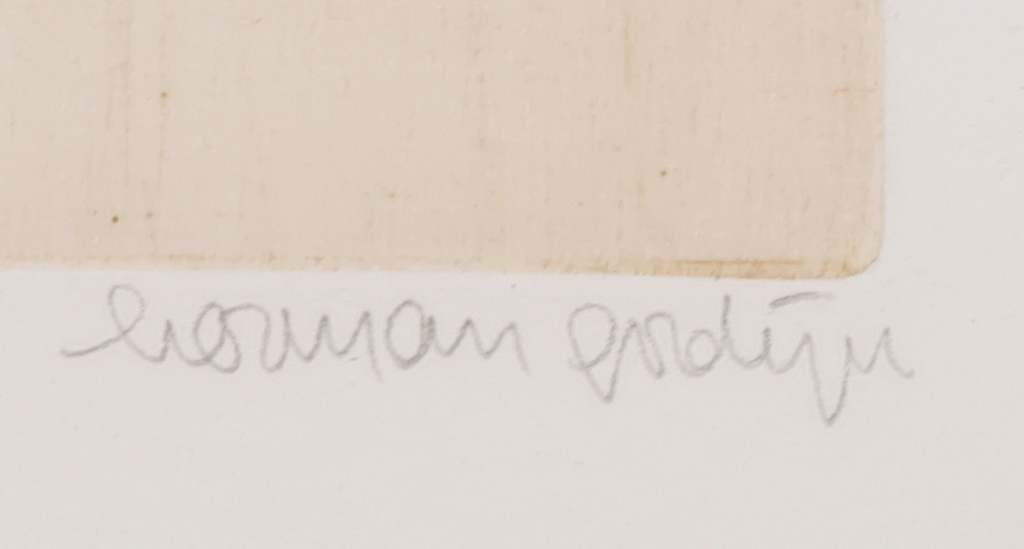 herman gordijn